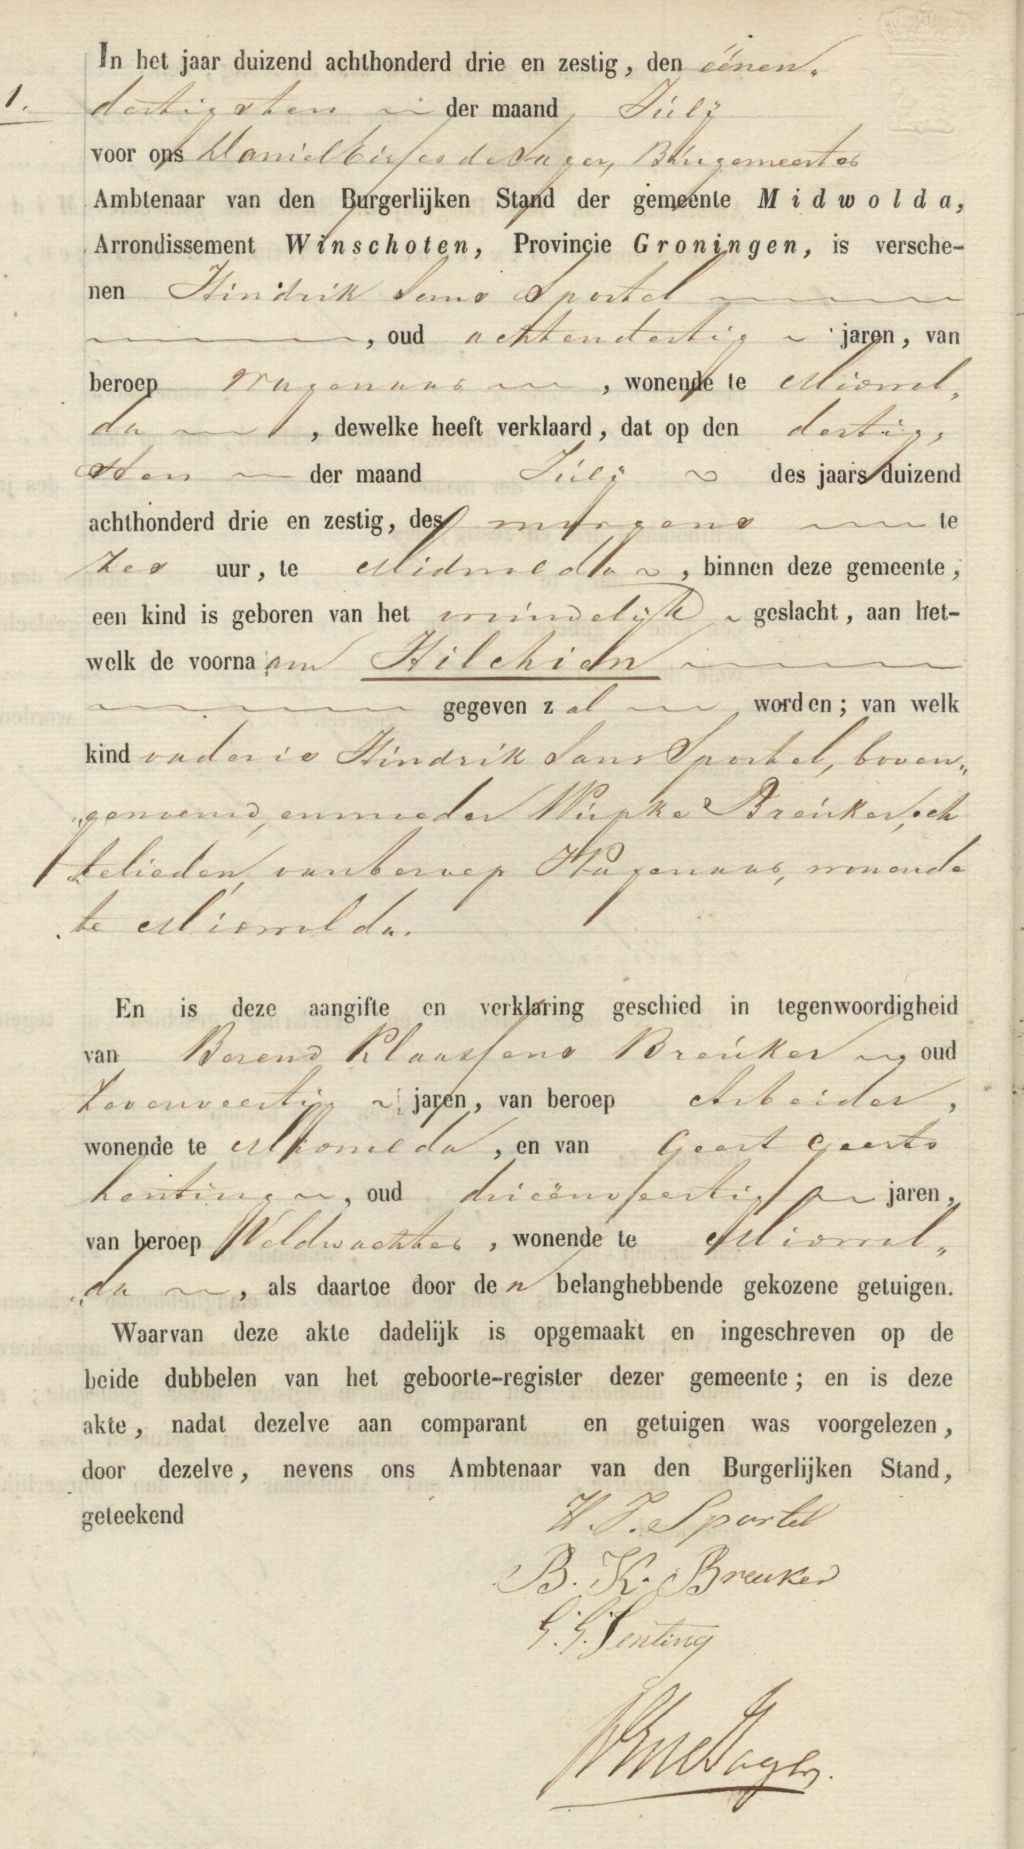 In het jaar duizend achthonderd drie en zestig, den eénen„
1.
dertigsten der maand Julij
voor ons Daniel Eisses de Jager, Burgemeester
Ambtenaar van den Burgerlijken Stand der gemeente Midwolda,
Arrondissement Winschoten, Provincie Groningen, is versche-
nen Hindrik Jans Sportel
, oud achtendertig jaren, van
beroep Wagenaar, wonende te Midwol„
da, dewelke heeft verklaard, dat op den dertig„
sten der maand Julij des jaars duizend
achthonderd drie en zestig, des morgens te
zes uur, te Midwolda, binnen deze gemeente,
een kind is geboren van het vrouwelijk geslacht, aan het-
welk de voornaam Hilchien
gegeven zal worden; van welk
kind vader is Hindrik Jans Sportel, boven„
„genoemd, en moeder Wupke Breuker, ech
„telieden, van beroep Wagenaar, wonende
te Midwolda.
En is deze aangifte en verklaring geschied in tegenwoordigheid
van Berend Klaassens Breuker oud
zevenveertig jaren, van beroep Arbeider,
wonende te Midwolda, en van Geert Geerts
Lenting, oud drieënveertig jaren,
van beroep Veldwachter, wonende te Midwol„
„da, als daartoe door den belanghebbende gekozene getuigen.
Waarvan deze akte dadelijk is opgemaakt en ingeschreven op de
beide dubbelen van het geboorte-register dezer gemeente; en is deze
akte, nadat dezelve aan comparant en getuigen was voorgelezen,
door dezelve, nevens ons Ambtenaar van den Burgerlijken Stand,
geteekend
H. J. Sportel
B. K. Breuker
G. G. Lenting
DE de Jager.